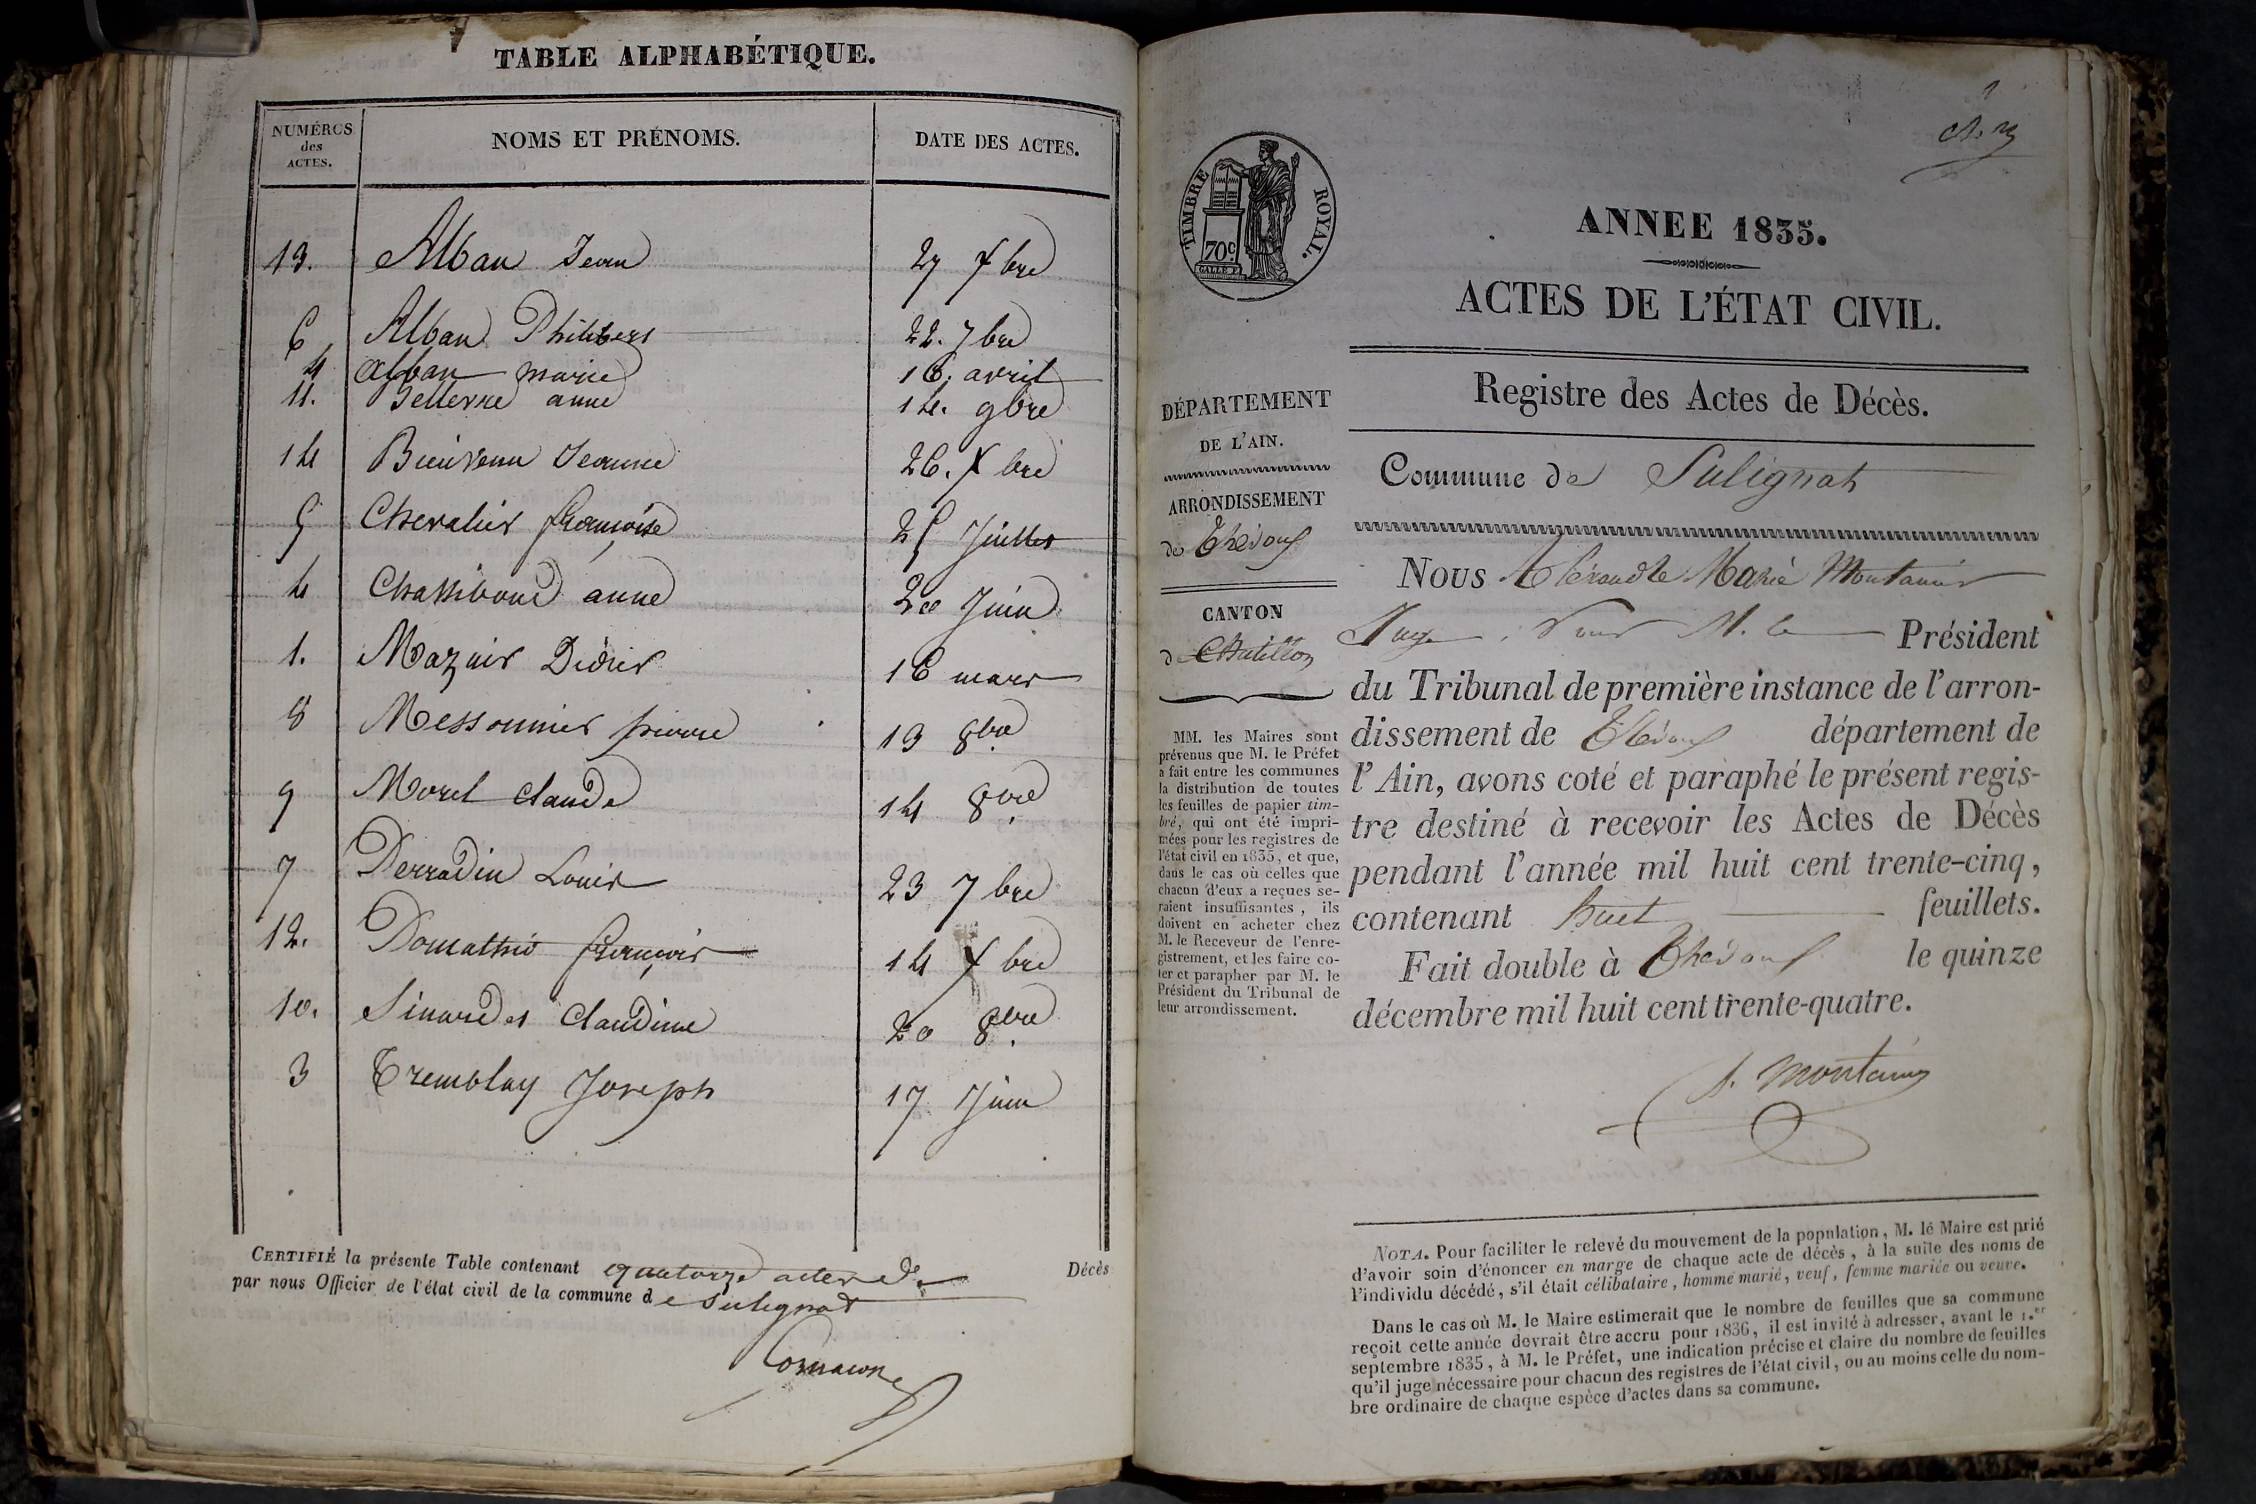 TABLE ALPHABÉTIQUE.
NUMÉROS des ACTES. NOMS ET PRÉNOMS. DATE DES ACTES.
13. Alban Jean 27 Xbre
6 Alban Philibert 22. 7bre
4 alban marie 16. avril
11. Bellevre anne 14. 9bre
14 Bienvenu Jeanne 26. Xbre
5 Chevalier françoise 25 Juillet
4 Chassiboud anne 20 Juin
1. Mazuir Didier 16 mars
8 Messonnier pierre 13 8bre
9 Morel claude 14 8bre
7 Perradin Louis 23 7bre
12. Pomathio françois 14 Xbre
10. Sinardet Claudine 20 8bre
3 Tremblay Joseph 17 Juin
CERTIFIÉ la présente Table contenant quatorze actes de Décès
par nous Officier de l'état civil de la commune de Sulignat
Cornaton
1
TIMBRE ROYAL.
70c
ANNEE 1835.
ACTES DE L'ÉTAT CIVIL.
Registre des Actes de Décès.
DÉPARTEMENT
DE L'AIN.
ARRONDISSEMENT
de Trévoux
CANTON
d Chatillon
MM. les Maires sont
prévenus que M. le Préfet
a fait entre les communes
la distribution de toutes
les feuilles de papier tim-
bré, qui ont été impri-
mées pour les registres de
l'état civil en 1835, et que,
dans le cas où celles que
chacun d'eux a reçues se-
raient insuffisantes, ils
doivent en acheter chez
M. le Receveur de l'enre-
gistrement, et les faire co-
ter et parapher par M. le
Président du Tribunal de
leur arrondissement.
Commune de Sulignat
Nous Alexandre Marie Montanier
Juge, pour M. le Président
du Tribunal de première instance de l'arron-
dissement de Trévoux département de
l'Ain, avons coté et paraphé le présent regis-
tre destiné à recevoir les Actes de Décès
pendant l'année mil huit cent trente-cinq,
contenant huit feuillets.
Fait double à Trévoux le quinze
décembre mil huit cent trente-quatre.
A. Montanier
NOTA. Pour faciliter le relevé du mouvement de la population, M. le Maire est prié
d'avoir soin d'énoncer en marge de chaque acte de décès, à la suite des noms de
l'individu décédé, s'il était célibataire, homme marié, veuf, femme mariée ou veuve.
Dans le cas où M. le Maire estimerait que le nombre de feuilles que sa commune
reçoit cette année devrait être accru pour 1836, il est invité à adresser, avant le 1.er
septembre 1835, à M. le Préfet, une indication précise et claire du nombre de feuilles
qu'il juge nécessaire pour chacun des registres de l'état civil, ou au moins celle du nom-
bre ordinaire de chaque espèce d'actes dans sa commune.